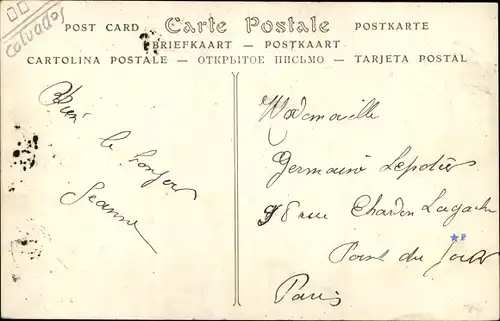 Calvados
POST CARD Carte Postale POSTKARTE
BRIEFKAART — POSTKAART
CARTOLINA POSTALE — ОТКРЫТОЕ ПИСЬМО — TARJETA POSTAL
le bonjour
Jeanne
Mademoiselle
Germaine Lepoties
98 rue Chardon Lagache
Point du Jour
Paris